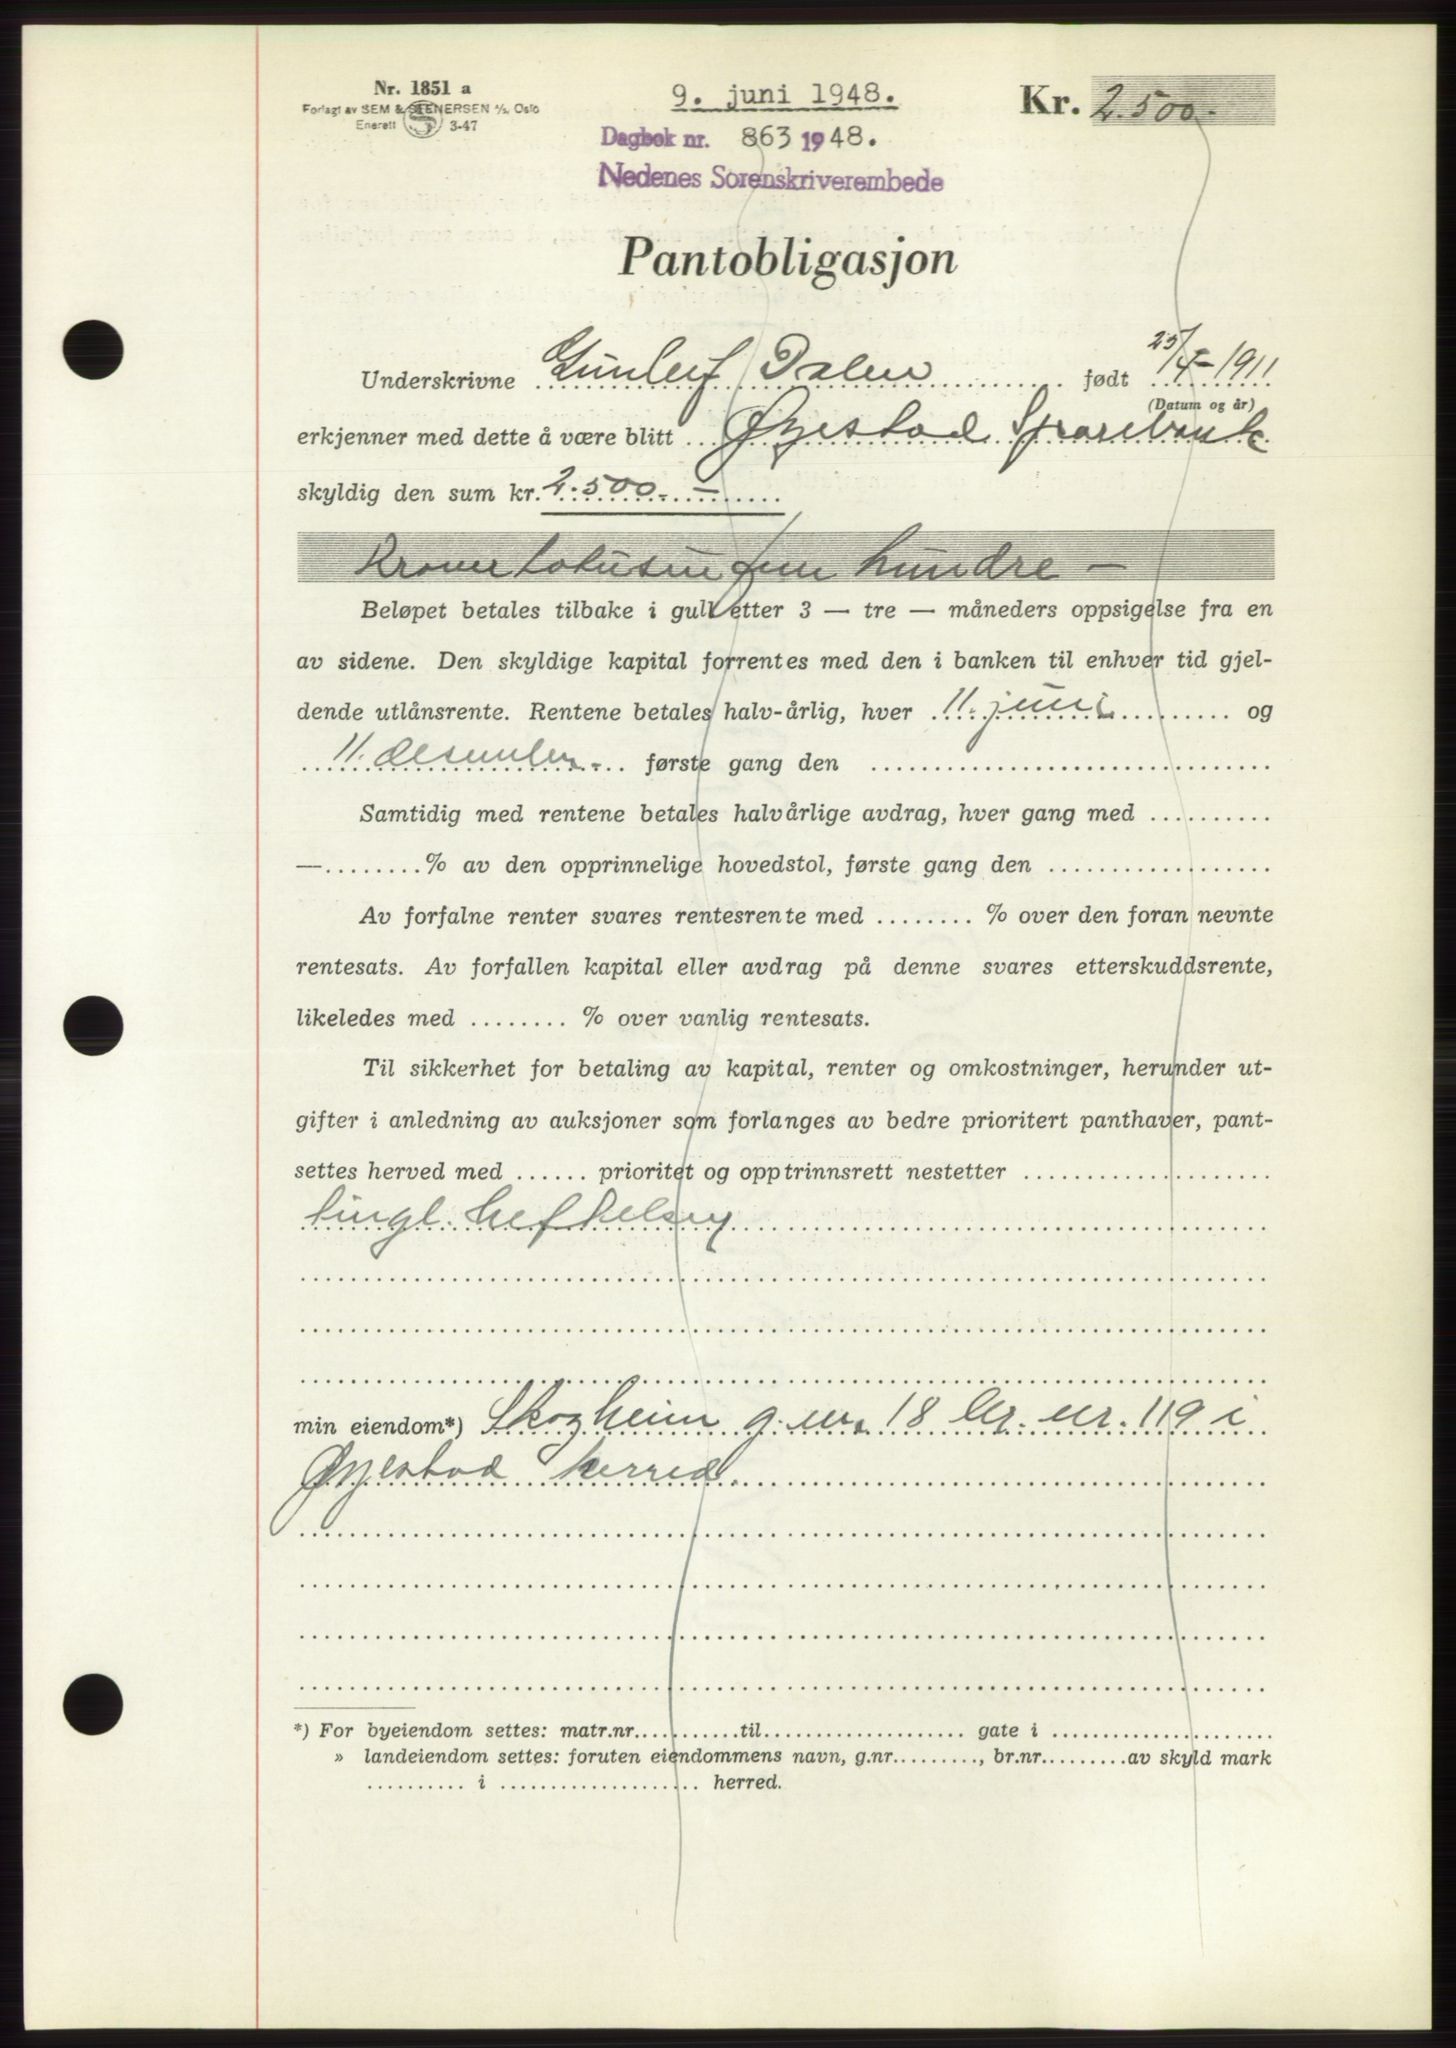 Nr. 1851 a
Forlagt av SEM & STENERSEN A/S, Oslo
Enerett 3-47
9. juni 1948.
Kr. 2.500.-
Dagbok nr. 863 1948.
Nedenes Sorenskriverembede
Pantobligasjon
Underskrivne Gunleif Dalen født 25/4-1911
(Datum og år)
erkjenner med dette å være blitt Øyestad Sparebank
skyldig den sum kr. 2.500.-
Kroner totusen fem hundre —
Beløpet betales tilbake i gull etter 3 — tre — måneders oppsigelse fra en
av sidene. Den skyldige kapital forrentes med den i banken til enhver tid gjel-
dende utlånsrente. Rentene betales halv-årlig, hver 11. juni og
11. desember - første gang den
Samtidig med rentene betales halvårlige avdrag, hver gang med
— % av den opprinnelige hovedstol, første gang den
Av forfalne renter svares rentesrente med % over den foran nevnte
rentesats. Av forfallen kapital eller avdrag på denne svares etterskuddsrente,
likeledes med % over vanlig rentesats.
Til sikkerhet for betaling av kapital, renter og omkostninger, herunder ut-
gifter i anledning av auksjoner som forlanges av bedre prioritert panthaver, pant-
settes herved med prioritet og opptrinnsrett nestetter
tingl. heftelser
min eiendom*) Skogheim g. nr. 18 br. nr. 119 i
Øyestad herred.
*) For byeiendom settes: matr.nr. til gate i
» landeiendom settes: foruten eiendommens navn, g.nr. , br.nr. av skyld mark
i herred.